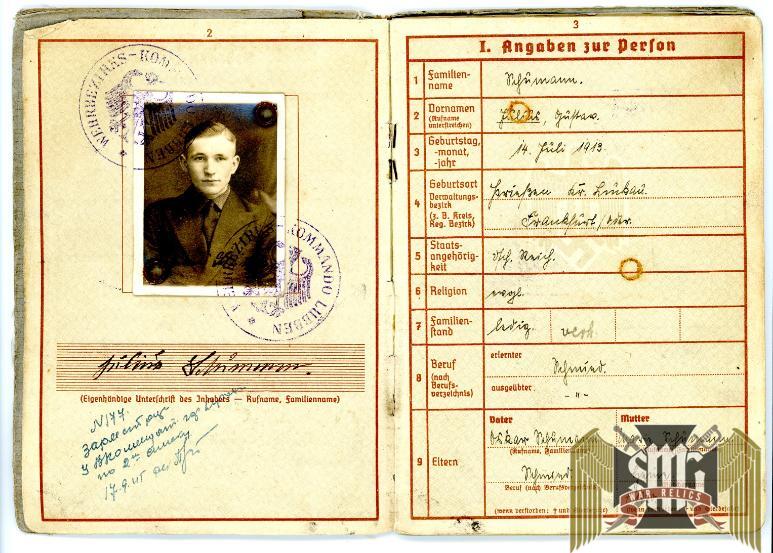 2
WEHRBEZIRKS-KOMMANDO LÜBBEN
WEHRBEZIRKS-KOMMANDO LÜBBEN
Julius Schumann.
(Eigenhändige Unterschrift des Inhabers — Rufname, Familienname)
N 177.
по
17.9.45
3
I. Angaben zur Person
1 Familien-name Schumann.
2 Vornamen (Rufname unterstreichen) Julius, Gustav.
3 Geburtstag, -monat, -jahr 14. Juli 1913.
4 Geburtsort Verwaltungs-bezirk (z. B. Kreis, Reg. Bezirk) Kr. Luckau.
Frankfurt/Oder.
5 Staats-angehörig-keit Dtsch. Reich.
6 Religion evgl.
7 Familien-stand ledig. verh.
8 Beruf (nach Berufs-verzeichnis) erlernter Schmied.
ausgeübter - " -
9 Eltern
Vater Mutter
Oskar Schumann Schumann
(Rufname, Familienname)
Schmied
Beruf (nach Berufsverzeichnis)
(wenn verstorben: † und Sterbejahr)
SMG
WAR RELICS